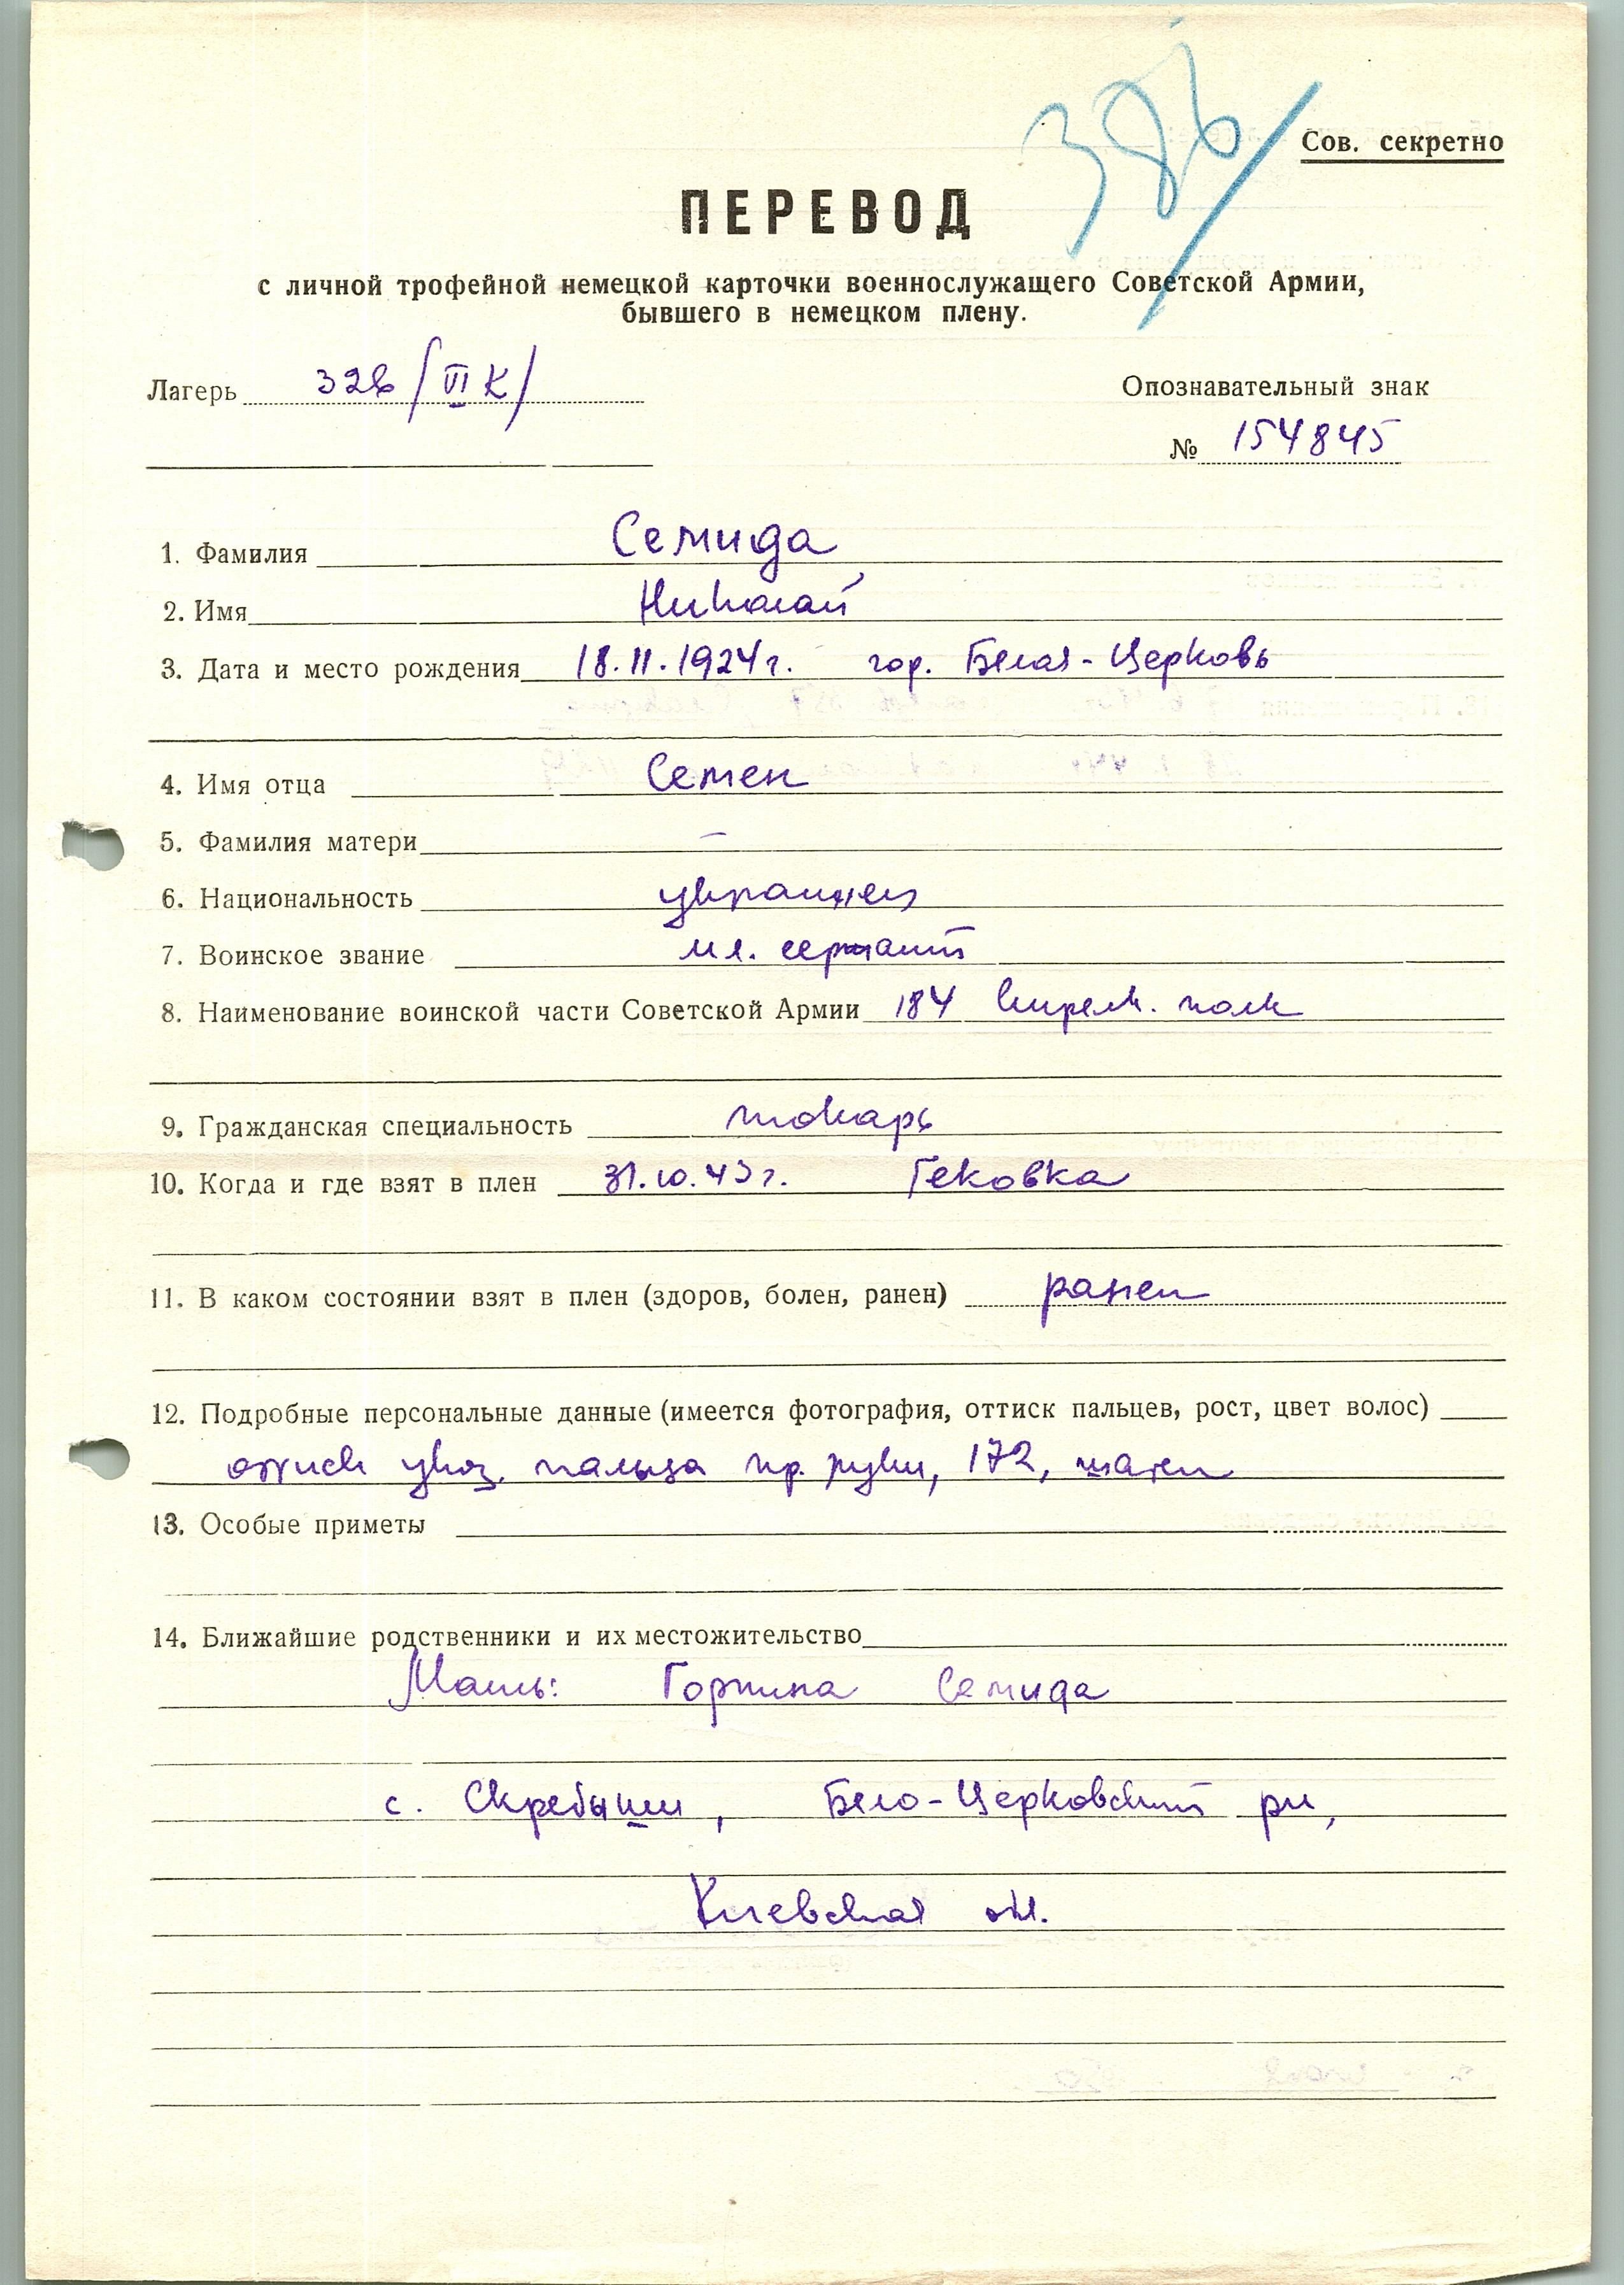 386/
Сов. секретно
ПЕРЕВОД
с личной трофейной немецкой карточки военнослужащего Советской Армии,
бывшего в немецком плену.
Лагерь 326 /VI К/
Опознавательный знак
№ 154845
1. Фамилия Семида
2. Имя Николай
3. Дата и место рождения 18.11.1924 г. гор. Белая-Церковь
4. Имя отца Семен
5. Фамилия матери —
6. Национальность украинец
7. Воинское звание мл. сержант
8. Наименование воинской части Советской Армии 184 стрелк. полк
9. Гражданская специальность токарь
10. Когда и где взят в плен 31.10.43 г. Гековка
11. В каком состоянии взят в плен (здоров, болен, ранен) ранен
12. Подробные персональные данные (имеется фотография, оттиск пальцев, рост, цвет волос)
оттиск указ. пальца пр. руки, 172, шатен
13. Особые приметы
14. Ближайшие родственники и их местожительство
Мать: Горпина Семида
с. Скребыши, Бело-Церковский рн,
Киевская обл.